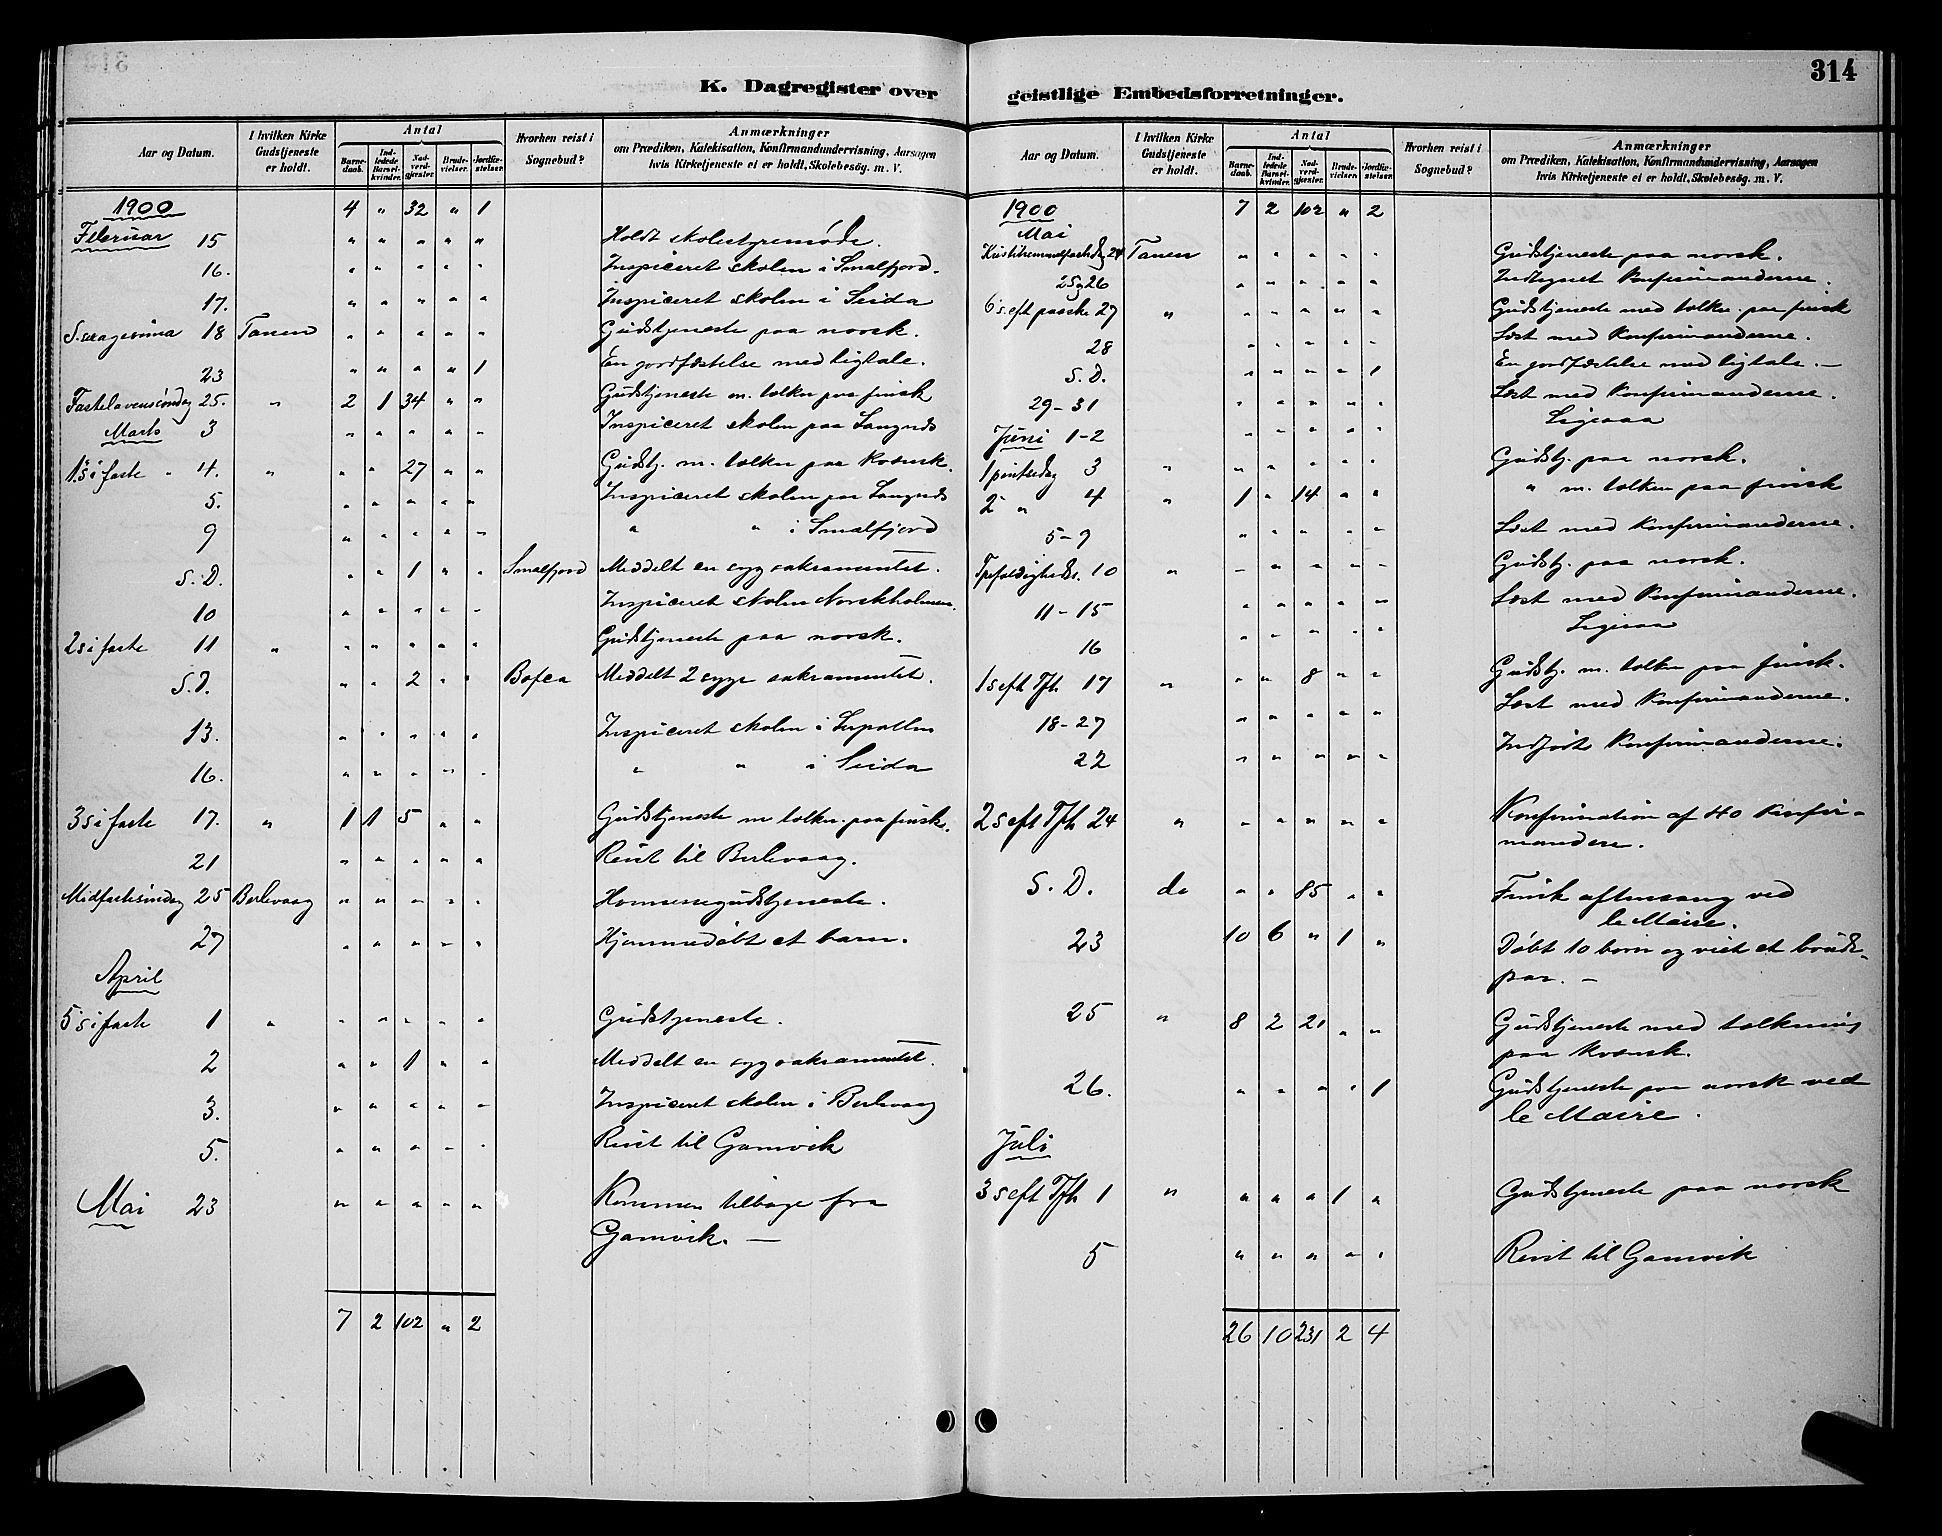 K. Dagregister over
Aar og Datum. | I hvilken Kirke Gudstjeneste er holdt. | Antal | Barnedaab. | Indledede Barselkvinder. | Nadverdgjester. | Brudevielser. | Jordfæstelser. | Hvorhen reist i Sognebud? | Anmærkninger om Prædiken, Katekisation, Konfirmandundervisning, Aarsagen hvis Kirketjeneste ei er holdt, Skolebesög. m. V.
1900 4 " 32 " 1
Februar 15 " " " " " Holdt skolestyremøde.
16. " " " " " Inspiceret skolen i Smalfjord.
17. " " " " " Inspiceret skolen i Seida
S.exagesima 18 Tanen " " " " " Gudstjeneste paa norsk.
23 " " " " 1 En jordfæstelse med ligtale.
Fastelavenssöndag 25. " 2 1 34 " " Gudstjeneste m. tolkn paa finsk
Marts 3 " " " " " Inspiceret skolen paa Langnes
1 s i faste 4. " " " 27 " " Gudstj. m. tolkn paa kvænsk.
5. " " " " " Inspiceret skolen paa Langnes
9 " " " " " " " i Smalfjord
S.D. " " 1 " " Smalfjord Meddelt en syg sakramentet.
10 " " " " " Inspiceret skolen Norskholmen.
2 s i faste 11 " " " " " " Gudstjeneste paa norsk.
S.D. " " 2 " " Meddelt 2 syge sakramentet.
13. " " " " " Inspiceret skolen i
16. " " " " " " " i Seida
3 s i faste 17. " 1 1 5 " " Gudstjeneste m tolkn. paa finsk.
21 " " " " " Reist til Berlevaag.
Midfastesöndag 25 Berlevaag " " " " " Homessegudstjeneste.
27 " " " " " Hjemmedöbt et barn.
April
5 s i faste 1 " " " " " " Gudstjeneste.
2 " " 1 " " Meddelt en syg sakramentet.
3. " " " " " Inspiceret skolen i Berlevaag
5. " " " " " Reist til Gamvik
Mai 23 " " " " " Kommen tilbage fra
Gamvik. —
7 2 102 " 2
314
geistlige Embedsforretninger.
Aar og Datum. | I hvilken Kirke Gudstjeneste er holdt. | Antal | Barnedaab. | Indledede Barselkvinder. | Nadverdgjester. | Brudevielser. | Jordfæstelser. | Hvorhen reist i Sognebud? | Anmærkninger om Prædiken, Katekisation, Konfirmandundervisning, Aarsagen hvis Kirketjeneste ei er holdt, Skolebesög. m. V.
1900 7 2 102 " 2
Mai
Kristi himmelfartsdag 24 Tanen " " " " " Gudstjeneste paa norsk.
25 og 26 " " " " " Indtegnet Konfirmanderne.
6 s. eft paaske 27 " " " " " " Gudstjeneste med tolkn. paa finsk
28 " " " " " Læst med Konfirmanderne.
S.D. " " " " 1 En jordfæstelse med ligtale. —
29-31 " " " " " Læst med Konfirmanderne.
Juni 1-2 " " " " " Ligesaa
1 pintsedag 3 " " " " " " Gudstj. paa norsk.
2 " 4 " 1 " 14 " " " m. tolken paa finsk
5-9 " " " " " Læst med Konfirmanderne.
Trefoldigheds. 10 " " " " " " Gudstj. paa norsk.
11-15 " " " " " Læst med Konfirmanderne.
16 " " " " " Ligesaa
1 s eft Tfh 17 " " " 8 " " Gudstj. m. tolkn paa finsk.
18-27 " " " " " Læst med Konfirmanderne.
22 " " " " " Indført Konfirmanderne.
2 s eft Tfh 24 " " " " " " Konfirmation af 40 Konfir-
mander.
S.D. do " " 85 " " Finsk aftensang ved
le Maire.
23 10 6 " 1 " Döbt 10 börn og viet et brude-
par. —
25 " 8 2 21 " " Gudstjeneste med tolkning
paa kvænsk.
26. " " " " 1 Gudstjeneste paa norsk ved
le Maire.
Juli
3 s eft Tfh 1 " " " " 1 " Gudstjeneste paa norsk
5 " " " " " Reist til Gamvik
26 10 231 2 4